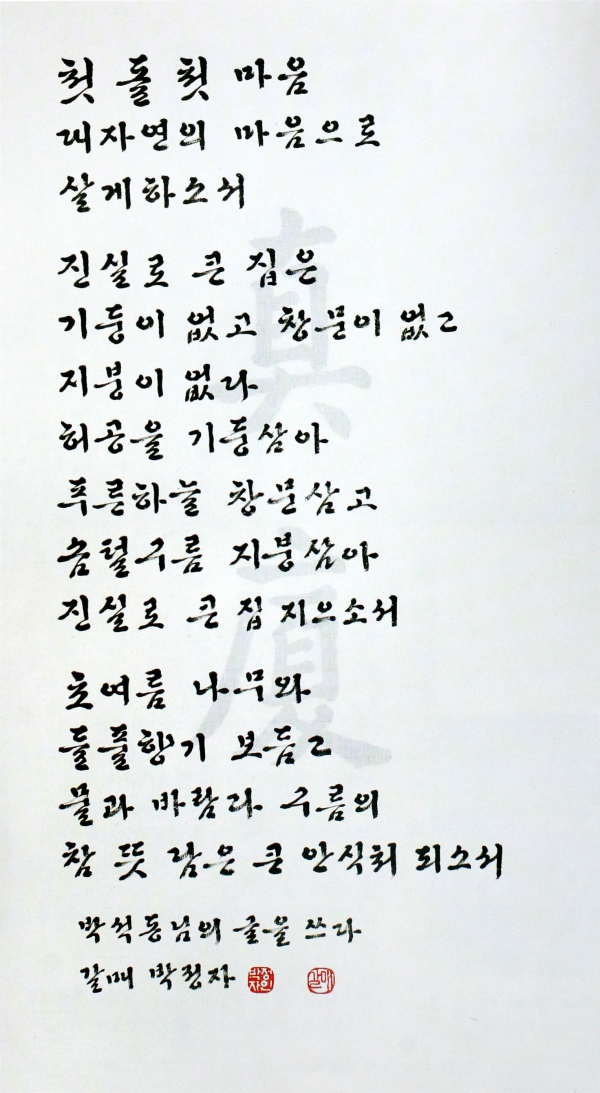 첫 돌 첫 마음
대자연의 마음으로
살게하소서
진실로 큰 집은
기둥이 없고 창문이 없고
지붕이 없다
허공을 기둥삼아
푸른하늘 창문삼고
솜털구름 지붕삼아
진실로 큰 집 지으소서
초여름 나무와
들풀향기 보듬고
물과 바람과 구름의
참 뜻 담은 큰 안식처 되소서
박석동님의 글을 쓰다
갈매 박정자
眞
廈